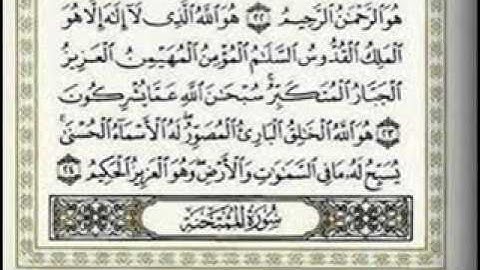 هُوَ الرَّحْمَٰنُ الرَّحِيمُ ٢٢ هُوَ اللَّهُ الَّذِي لَا إِلَٰهَ إِلَّا هُوَ
الْمَلِكُ الْقُدُّوسُ السَّلَامُ الْمُؤْمِنُ الْمُهَيْمِنُ الْعَزِيزُ
الْجَبَّارُ الْمُتَكَبِّرُ سُبْحَانَ اللَّهِ عَمَّا يُشْرِكُونَ
٢٣ هُوَ اللَّهُ الْخَالِقُ الْبَارِئُ الْمُصَوِّرُ لَهُ الْأَسْمَاءُ الْحُسْنَىٰ
يُسَبِّحُ لَهُ مَا فِي السَّمَاوَاتِ وَالْأَرْضِ وَهُوَ الْعَزِيزُ الْحَكِيمُ ٢٤
سُورَةُ الْمُمْتَحِنَةِ